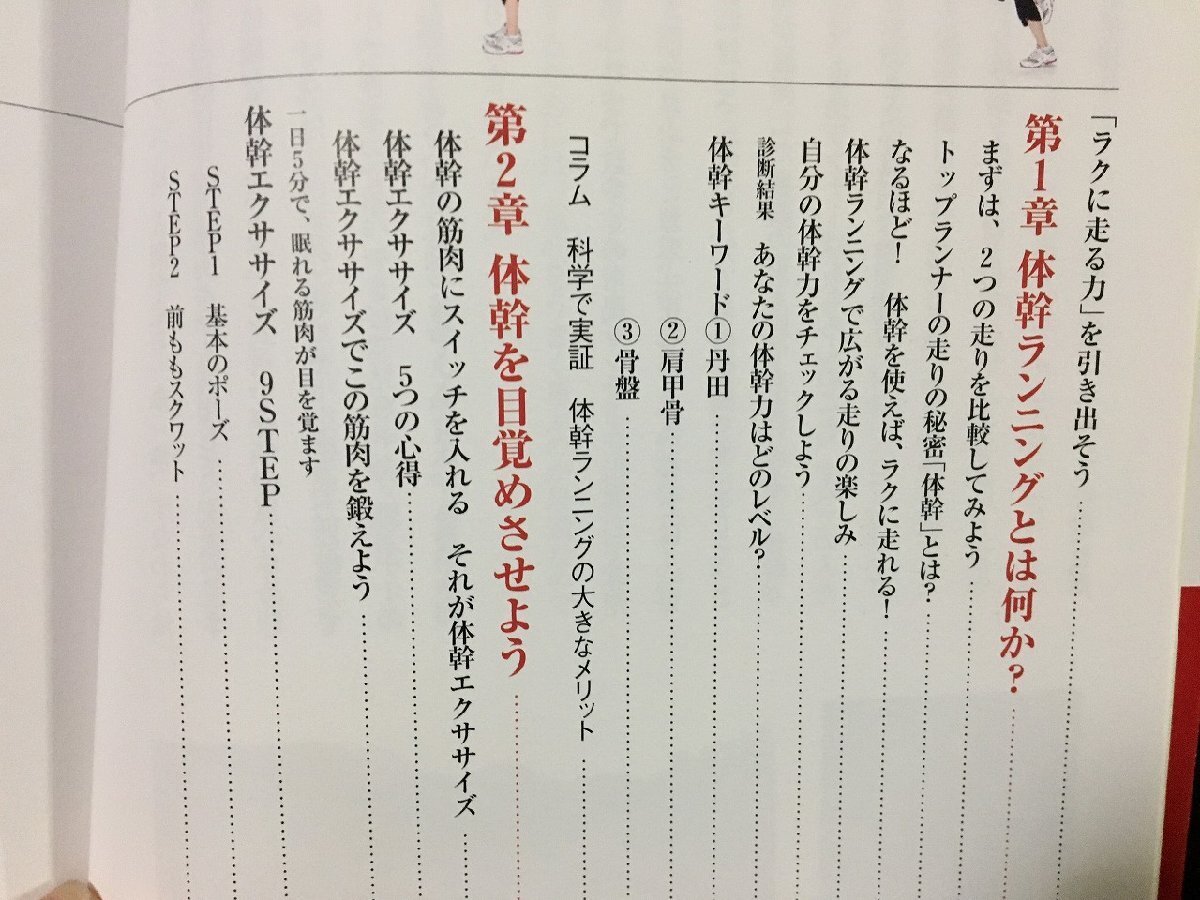 「ラクに走る力」を引き出そう
第1章 体幹ランニングとは何か?
まずは、2つの走りを比較してみよう
トップランナーの走りの秘密「体幹」とは?
なるほど! 体幹を使えば、ラクに走れる!
体幹ランニングで広がる走りの楽しみ
自分の体幹力をチェックしよう
診断結果 あなたの体幹力はどのレベル?
体幹キーワード①丹田
②肩甲骨
③骨盤
コラム 科学で実証 体幹ランニングの大きなメリット
第2章 体幹を目覚めさせよう
体幹の筋肉にスイッチを入れる それが体幹エクササイズ
体幹エクササイズ 5つの心得
体幹エクササイズでこの筋肉を鍛えよう
一日5分で、眠れる筋肉が目を覚ます
体幹エクササイズ 9STEP
STEP1 基本のポーズ
STEP2 前ももスクワット